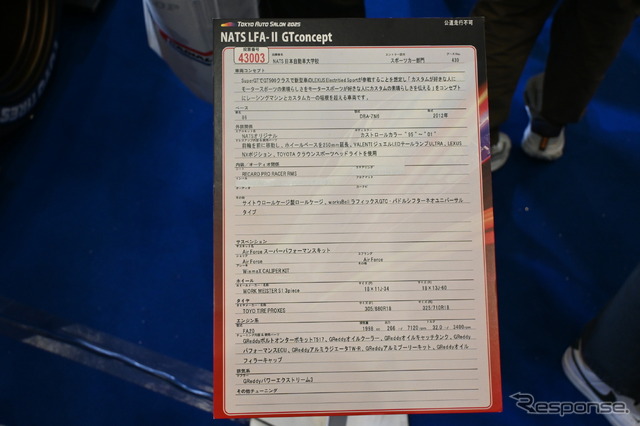 TOKYO AUTO SALON 2025
公道走行不可
NATS LFA-II GTconcept
投票番号
43003
NATS 日本自動車大学校
スポーツカー部門
車両コンセプト
SuperGTでGT500クラスで新型車のLEXUS Electrified Sportが参戦することを想定し「カスタムが好きな人に
モータースポーツの素晴らしさをモータースポーツが好きな人にカスタムの素晴らしさを伝える」をコンセプト
にレーシングマシンとカスタムカーの垣根を超える車両です。
86
DBA-ZN6
2012年
外装関係
NATSオリジナル
カストロールカラー "95"ー"01"
前輪を前に移動し、ホイールベースを350mm延長。VALENTI ジュエルLEDテールランプULTRA、LEXUS
NXポジション、TOYOTA クラウンスポーツヘッドライトを使用
内装/オーディオ関係
RECARO PRO RACER RMS
サイトウロールケージ製ロールケージ、worksBell ラフィックスGTC・パドルシフターネオユニバーサル
タイプ
サスペンション
Air Force スーパーパフォーマンスキット
Air Force
Air Force
WinmaX CALIPER KIT
ホイール
WORK MEISTER S1 3piece
18×11J-34
18×13J-60
タイヤ
TOYO TIRE PROXES
305/680R18
325/710R18
エンジン系
FA20
1998 cc
7120 rpm
GReddyボルトオンターボキットT517、GReddyオイルクーラー、GReddyオイルキャッチタンク、GReddy
パフォーマンスECU、GReddyアルミラジエータTW-R、GReddyアルミプーリーキット、GReddyオイル
フィラーキャップ
排気系
GReddyパワーエクストリーム2
その他チューニング
Response.